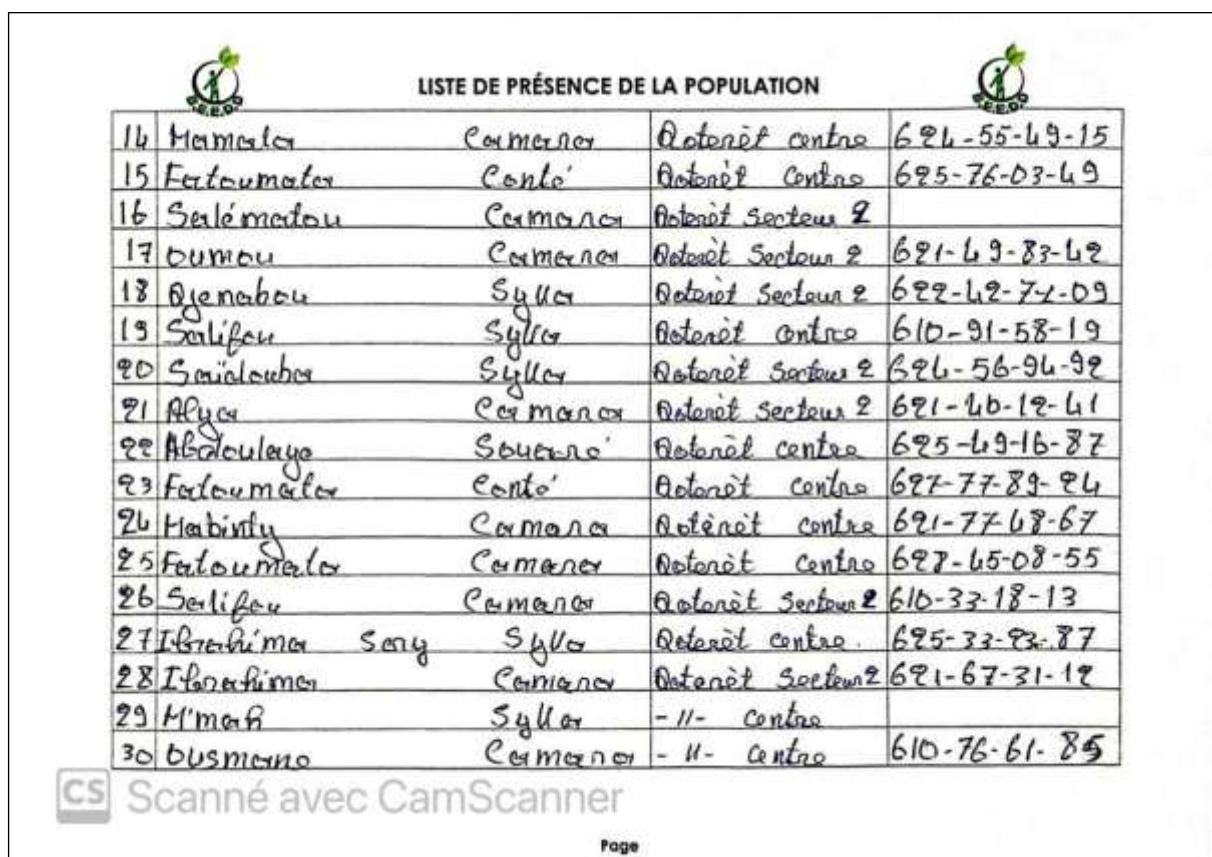 B.E.E.D.D
B.E.E.D.D
LISTE DE PRÉSENCE DE LA POPULATION
14 Mamata Camara Dotérèt centre 624-55-49-15
15 Fatoumata Conté Dotérèt Centre 625-76-03-49
16 Salématou Camara Dotérèt Secteur 2
17 Oumou Camara Dotérèt Secteur 2 621-49-83-42
18 Djenabou Sylla Dotérèt Secteur 2 622-42-71-09
19 Salifou Sylla Dotérèt centre 610-91-58-19
20 Saïdouba Sylla Dotérèt Secteur 2 624-56-94-92
21 Alya Camara Dotérèt Secteur 2 621-40-12-41
22 Abdoulaye Souaré Dotérèt centre 625-49-16-87
23 Fatoumata Conté Dotérèt centre 627-77-89-24
24 Mabinty Camara Dotèrèt centre 621-77-48-67
25 Fatoumata Camara Dotérèt centre 628-45-08-55
26 Salifou Camara Dotérèt Secteur 2 610-33-18-13
27 Ibrahima Sory Sylla Dotérèt centre. 625-33-23-87
28 Ibrahima Camara Dotérèt Secteur 2 621-67-31-12
29 M'mah Sylla -//- centre
30 Ousmane Camara -//- centre 610-76-61-85
CS Scanné avec CamScanner
Page